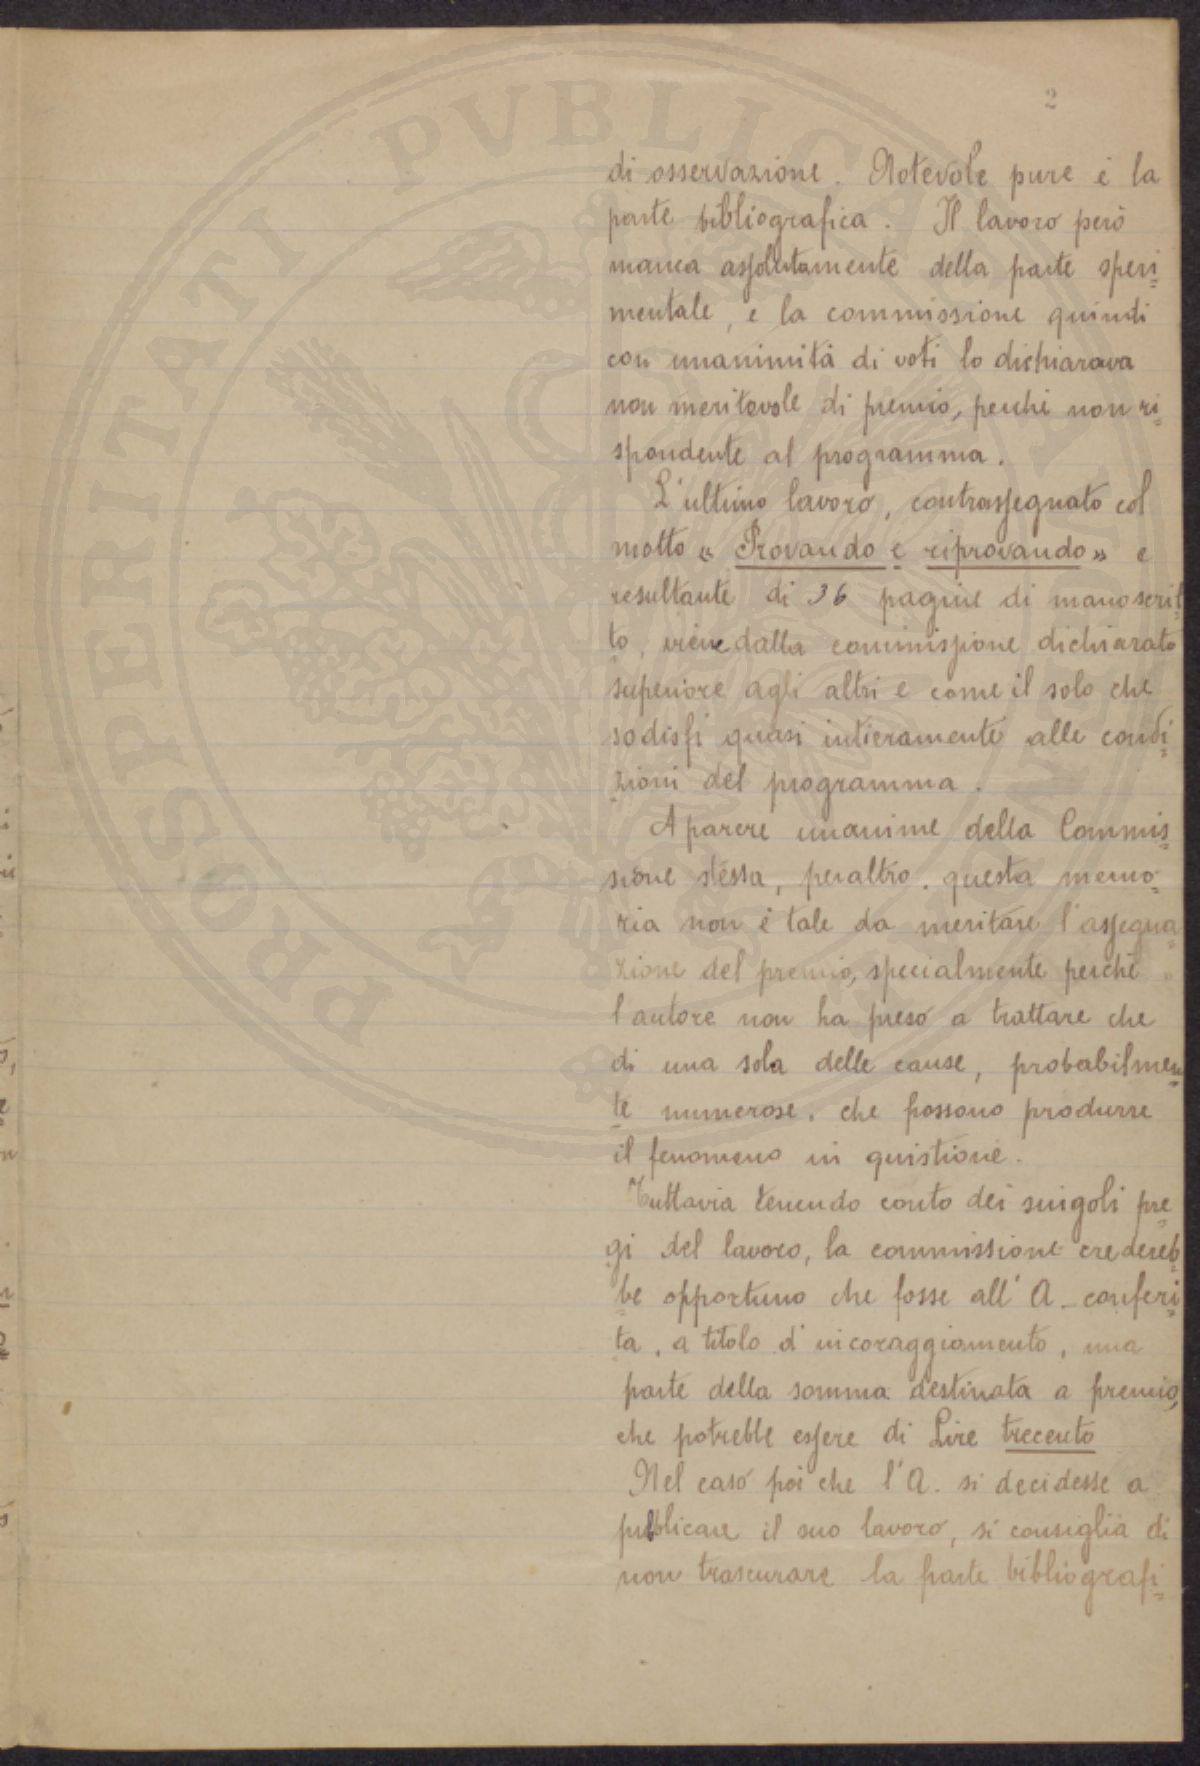 PROSPERITATI PVBLICAE
2
di osservazione. Notevole pure è la
parte bibliografica. Il lavoro però
manca assolutamente della parte speri=
mentale, e la commissione quindi
con unanimità di voti lo dichiarava
non meritevole di premio, perchè non ri=
spondente al programma.
L'ultimo lavoro, contrassegnato col
motto « Provando e riprovando » e
resultante di 36 pagine di manoscrit=
to, viene dalla commissione dichiarato
superiore agli altri e come il solo che
sodisfi quasi intieramente alle condi=
zioni del programma.
A parere unanime della Commis=
sione stessa, peraltro, questa memo=
ria non è tale da meritare l'assegna=
zione del premio, specialmente perchè
l'autore non ha preso a trattare che
di una sola delle cause, probabilmen=
te numerose, che possono produrre
il fenomeno in quistione.
Tuttavia tenendo conto dei singoli pre=
gi del lavoro, la commissione credereb=
be opportuno che fosse all'A. conferi=
ta, a titolo d'incoraggiamento, una
parte della somma destinata a premio,
che potrebbe essere di Lire trecento
Nel caso poi che l'A. si decidesse a
pubblicare il suo lavoro, si consiglia di
non trascurare la parte bibliografi=